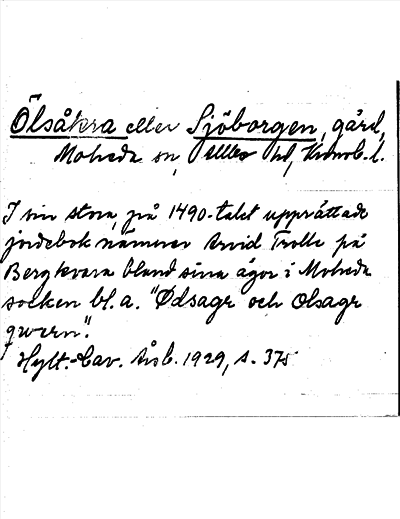 Ölsåkra eller Sjöborgen, gård,
Moheda sn, Allbo hd, Kronob. l.
I sin stora, på 1490-talet upprättade
jordebok nämner Arvid Trolle på
Bergkvara bland sina ägor i Moheda
socken bl. a. "Ødsagr och Olsagr
qwern".
Hylt.-Cav. Årsb. 1929, s. 375